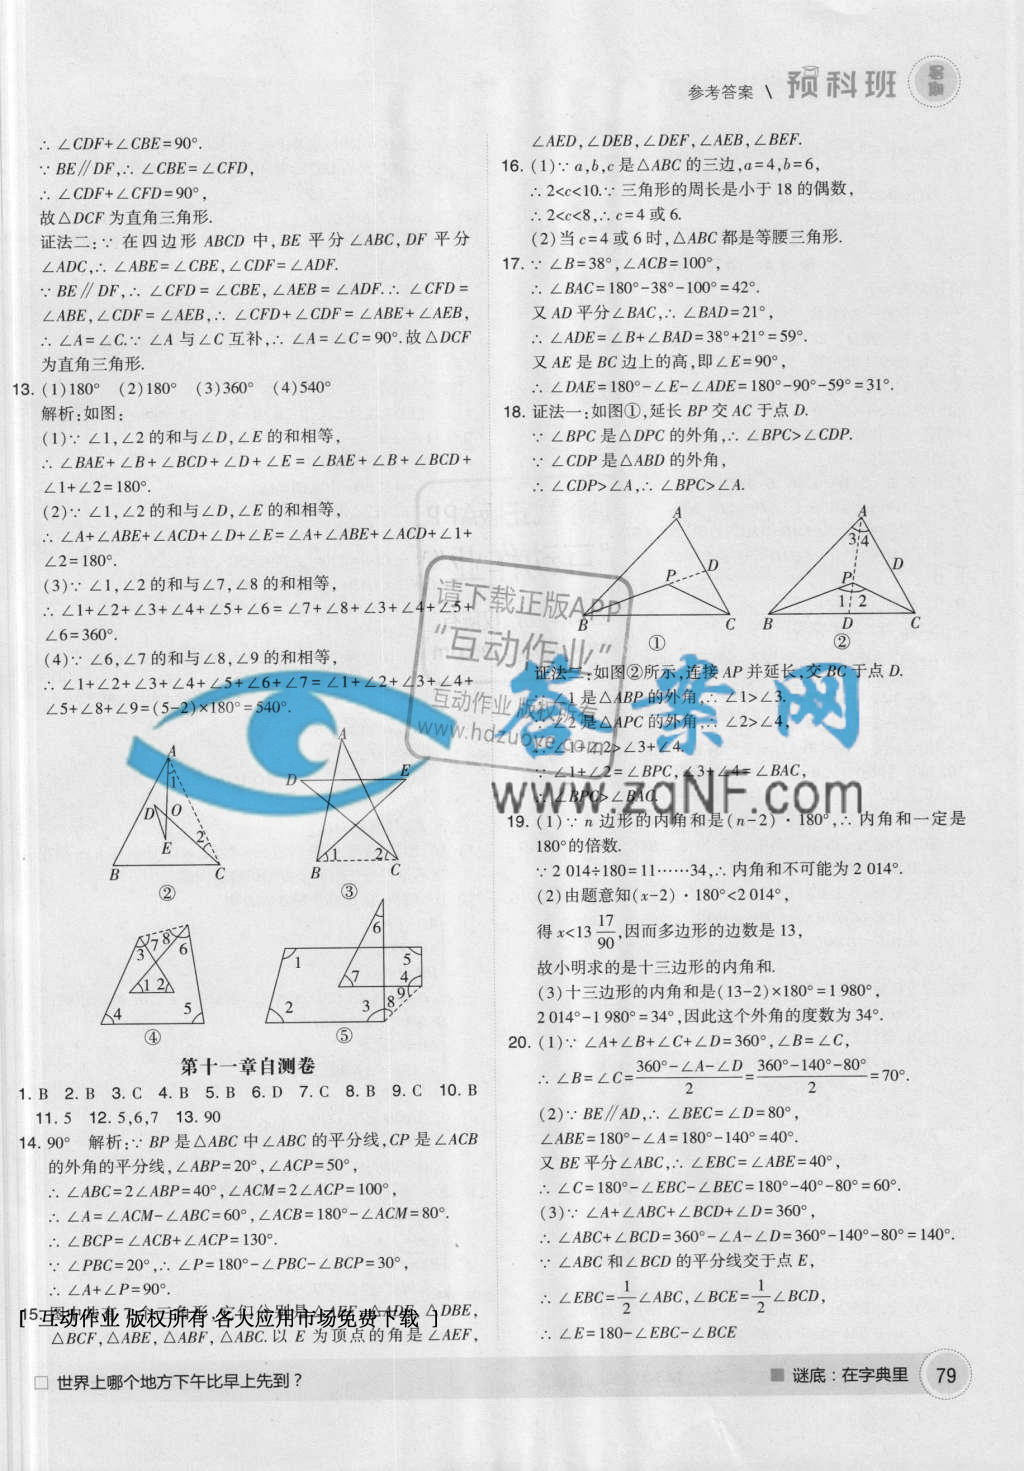 参考答案 \ 预科班 暑期
∴ ∠CDF+∠CBE=90°.
∵ BE∥DF,∴ ∠CBE=∠CFD,
∴ ∠CDF+∠CFD=90°,
故△DCF 为直角三角形.
证法二:∵ 在四边形 ABCD 中,BE 平分∠ABC,DF 平分
∠ADC,∴ ∠ABE=∠CBE,∠CDF=∠ADF.
∵ BE∥DF,∴ ∠CFD=∠CBE,∠AEB=∠ADF.∴ ∠CFD=
∠ABE,∠CDF=∠AEB,∴ ∠CFD+∠CDF=∠ABE+∠AEB,
∴ ∠A=∠C.∵ ∠A 与∠C 互补,∴ ∠A=∠C=90°.故△DCF
为直角三角形.
13. (1)180° (2)180° (3)360° (4)540°
解析:如图:
(1)∵ ∠1,∠2的和与∠D,∠E的和相等,
∴ ∠BAE+∠B+∠BCD+∠D+∠E=∠BAE+∠B+∠BCD+
∠1+∠2=180°.
(2)∵ ∠1,∠2的和与∠D,∠E的和相等,
∴ ∠A+∠ABE+∠ACD+∠D+∠E=∠A+∠ABE+∠ACD+∠1+
∠2=180°.
(3)∵ ∠1,∠2的和与∠7,∠8的和相等,
∴ ∠1+∠2+∠3+∠4+∠5+∠6=∠7+∠8+∠3+∠4+∠5+
∠6=360°.
(4)∵ ∠6,∠7的和与∠8,∠9的和相等,
∴ ∠1+∠2+∠3+∠4+∠5+∠6+∠7=∠1+∠2+∠3+∠4+
∠5+∠8+∠9=(5-2)×180°=540°.
A 1 D O E 2 B C
②
A D E 1 2 B C
③
3 7 8 6 1 2 4 5
④
6 1 5 7 4 9 2 3 8
⑤
第十一章自测卷
1. B 2. B 3. C 4. B 5. B 6. D 7. C 8. B 9. C 10. B
11. 5 12. 5,6,7 13. 90
14. 90° 解析:∵ BP 是△ABC 中∠ABC 的平分线,CP 是∠ACB
的外角的平分线,∠ABP=20°,∠ACP=50°,
∴ ∠ABC=2∠ABP=40°,∠ACM=2∠ACP=100°,
∴ ∠A=∠ACM-∠ABC=60°,∠ACB=180°-∠ACM=80°.
∴ ∠BCP=∠ACB+∠ACP=130°.
∵ ∠PBC=20°,∴ ∠P=180°-∠PBC-∠BCP=30°,
∴ ∠A+∠P=90°.
15. 图中共有 7 个三角形,它们分别是△AEF,△ADE,△DBE,
△BCF,△ABE,△ABF,△ABC.以 E 为顶点的角是∠AEF,
∠AED,∠DEB,∠DEF,∠AEB,∠BEF.
16. (1)∵ a,b,c 是△ABC 的三边,a=4,b=6,
∴ 2<c<10.∵ 三角形的周长是小于 18 的偶数,
∴ 2<c<8,∴ c=4 或 6.
(2)当 c=4 或 6 时,△ABC 都是等腰三角形.
17. ∵ ∠B=38°,∠ACB=100°,
∴ ∠BAC=180°-38°-100°=42°.
又 AD 平分∠BAC,∴ ∠BAD=21°,
∴ ∠ADE=∠B+∠BAD=38°+21°=59°.
又 AE 是 BC 边上的高,即∠E=90°,
∴ ∠DAE=180°-∠E-∠ADE=180°-90°-59°=31°.
18. 证法一:如图①,延长 BP 交 AC 于点 D.
∵ ∠BPC 是△DPC 的外角,∴ ∠BPC>∠CDP.
∵ ∠CDP 是△ABD 的外角,
∴ ∠CDP>∠A,∴ ∠BPC>∠A.
A D P B C
①
A 3 4 D P 1 2 B D C
②
证法二:如图②所示,连接 AP 并延长,交 BC 于点 D.
∵ ∠1 是△ABP 的外角,∴ ∠1>∠3.
∵ ∠2 是△APC 的外角,∴ ∠2>∠4,
∴ ∠1+∠2>∠3+∠4.
∵ ∠1+∠2=∠BPC,∠3+∠4=∠BAC,
∴ ∠BPC>∠BAC.
19. (1)∵ n 边形的内角和是(n-2)·180°,∴ 内角和一定是
180°的倍数.
∵ 2 014÷180=11……34,∴ 内角和不可能为 2 014°.
(2)由题意知(x-2)·180°<2 014°,
得 x<13 17/90,因而多边形的边数是 13,
故小明求的是十三边形的内角和.
(3)十三边形的内角和是(13-2)×180°=1 980°,
2 014°-1 980°=34°,因此这个外角的度数为 34°.
20. (1)∵ ∠A+∠B+∠C+∠D=360°,∠B=∠C,
∴ ∠B=∠C=(360°-∠A-∠D)/2=(360°-140°-80°)/2=70°.
(2)∵ BE∥AD,∴ ∠BEC=∠D=80°,
∠ABE=180°-∠A=180°-140°=40°.
又 BE 平分∠ABC,∴ ∠EBC=∠ABE=40°,
∴ ∠C=180°-∠EBC-∠BEC=180°-40°-80°=60°.
(3)∵ ∠A+∠ABC+∠BCD+∠D=360°,
∴ ∠ABC+∠BCD=360°-∠A-∠D=360°-140°-80°=140°.
∵ ∠ABC 和∠BCD 的平分线交于点 E,
∴ ∠EBC=1/2∠ABC,∠BCE=1/2∠BCD,
∴ ∠E=180-∠EBC-∠BCE
请下载正版APP
“互动作业”
互动作业 版权所有
www.hdzuoye.com
答案网
www.zqNF.com
[ 互动作业 版权所有 各大应用市场免费下载 ]
世界上哪个地方下午比早上先到?
谜底:在字典里
79